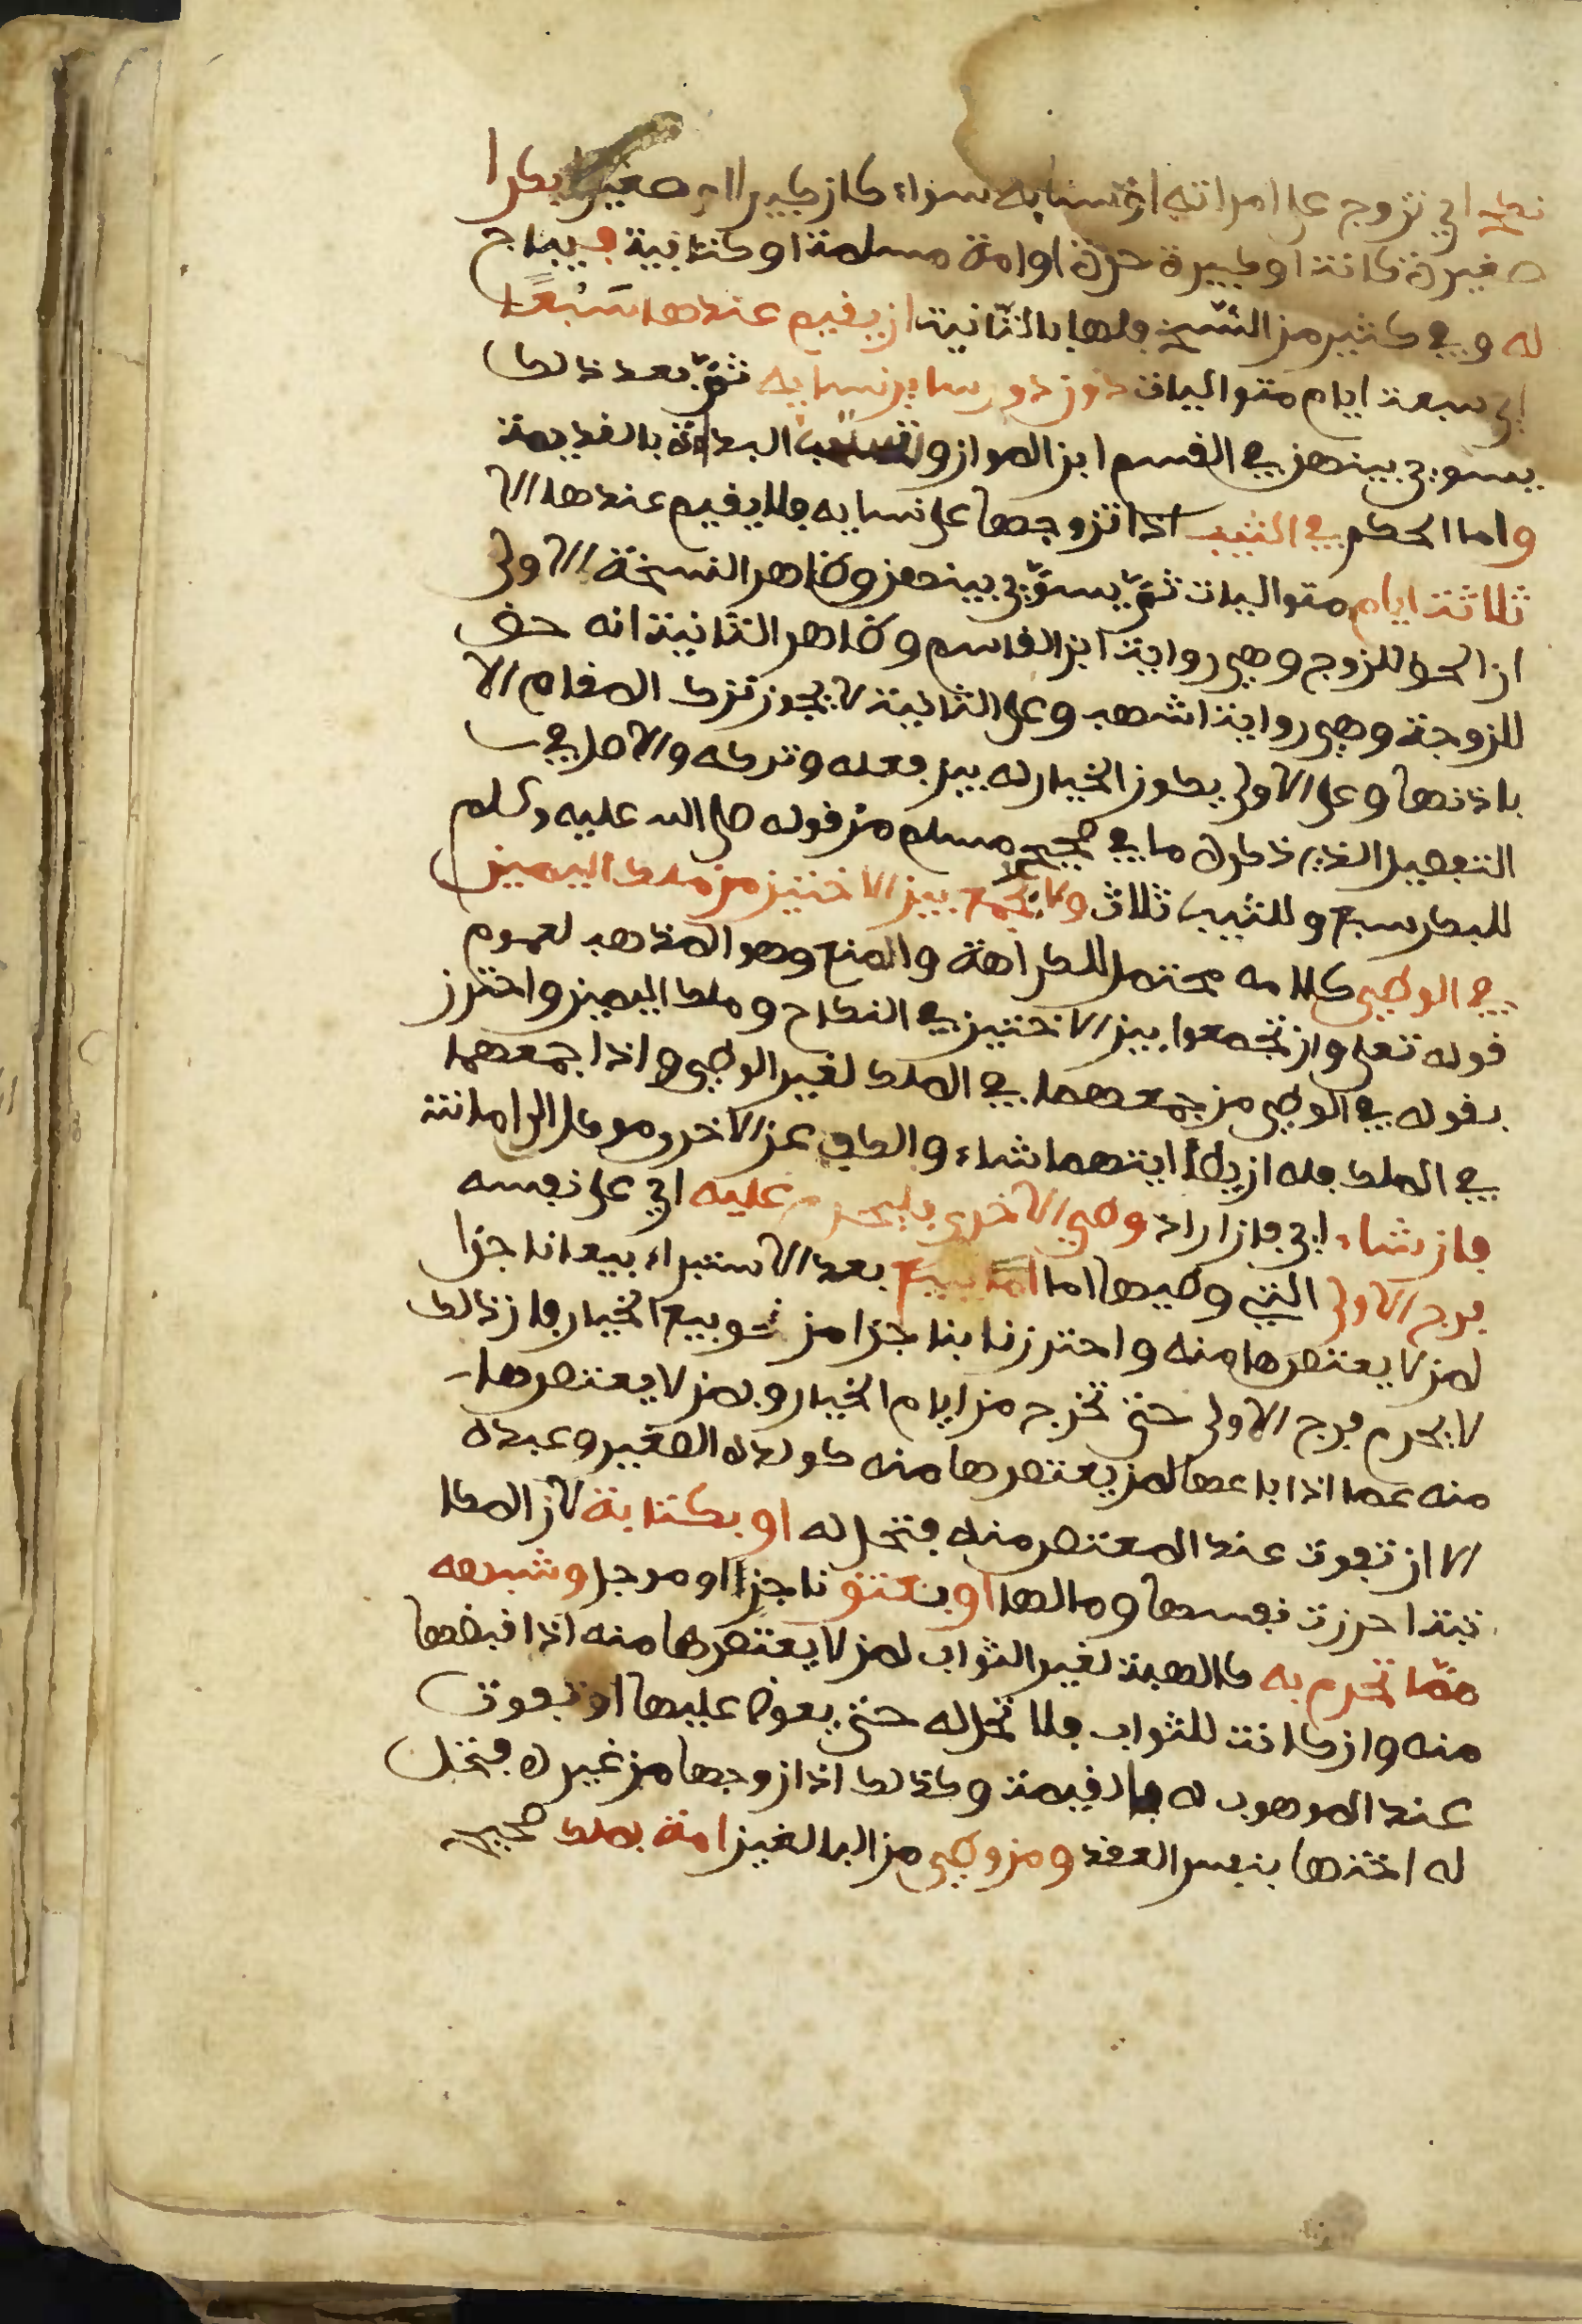 نكح اي تزوج على امراته او نسايه سواء كان كبيرا او صغيرا بكرا
صغيرة كانت او كبيرة حرة او امة مسلمة او كتابية فيباح
له وفي كثير من النسخ فلها بالتانية ان يقيم عندها سَبْعًا
اي سبعة ايام متواليات دون دور ساير نسايه ثمّ بعد ذلك
يسوي بينهن في القسم ابن المواز وتستحب البداءة بالقديمة
واما الحكم في الثيب اذا تزوجها على نسايه فلا يقيم عندها الا
ثلاثة ايام متواليات ثمّ يسوّي بينهن وظاهر النسخة الاولى
ان الحق للزوج وهي رواية ابن القاسم وظاهر الثانية انه حق
للزوجة وهي رواية اشهب وعلى الثانية لا يجوز ترك المقام الا
باذنها وعلى الاولى يكون الخيار له بين فعله وتركه والاصل في
التفصيل الذي ذكره ما في صحيح مسلم من قوله صلى الله عليه وسلم
للبكر سبع وللثيب ثلاث ولا يجمع بين الاختين من ملك اليمين
في الوطي كلامه محتمل للكراهة والمنع وهو المذهب لعموم
قوله تعلى وان تجمعوا بين الاختين في النكاح وملك اليمين واحترز
بقوله في الوطي من جمعهما في الملك لغير الوطي واذا جمعهما
في الملك فله ان يطأ ايتهما شاء والكف عن الاخرى موكل الى امانته
فان شاء اي فان اراد وطي الاخرى فليحرم عليه اي على نفسه
فرج الاولى التي وطيها اما ببيع بعد الاستبراء بيعا ناجزا
لمن لا يعتصرها منه واحترزنا بناجزا من نحو بيع الخيار فان ذلك
لا يحرم فرج الاولى حتى تخرج من ايام الخيار وبمن لا يعتصرها
منه عما اذا باعها لمن يعتصرها منه كولده الصغير وعبده
الا ان تفوت عند المعتصر منه فتحل له او بكتابة لان المكا
تبة احرزت نفسها ومالها او بعتق ناجزا او موجل وشبهه
ممّا تحرم به كالهبة لغير الثواب لمن لا يعتصرها منه اذا قبضها
منه وان كانت للثواب فلا تحل له حتى يعوض عليها او تفوت
عند الموهوب له بالقيمة وكذلك اذا زوجها من غيره فتحل
له اختها بنفس العقد ومن وطي من البالغين امة بملك صحيح